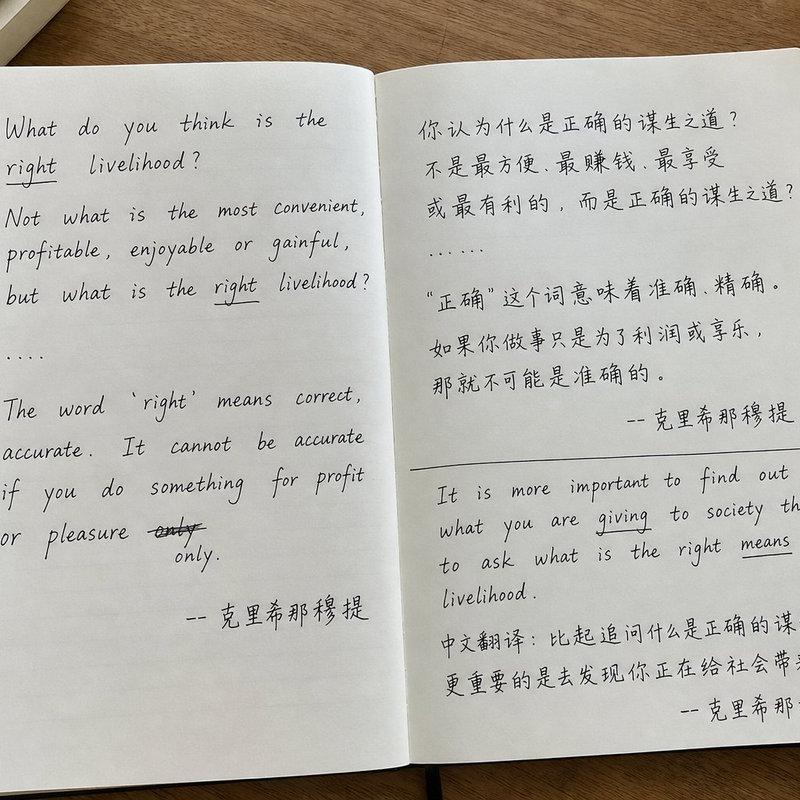 What do you think is the
right livelihood?
Not what is the most convenient,
profitable, enjoyable or gainful,
but what is the right livelihood?
....
The word 'right' means correct,
accurate. It cannot be accurate
if you do something for profit
or pleasure only
only.
-- 克里希那穆提
你认为什么是正确的谋生之道？
不是最方便、最赚钱、最享受
或最有利的，而是正确的谋生之道？
......
“正确”这个词意味着准确、精确。
如果你做事只是为了利润或享乐，
那就不可能是准确的。
-- 克里希那穆提
It is more important to find out
what you are giving to society
to ask what is the right means
livelihood.
中文翻译：比起追问什么是正确的谋
更重要的是去发现你正在给社会带
-- 克里希那